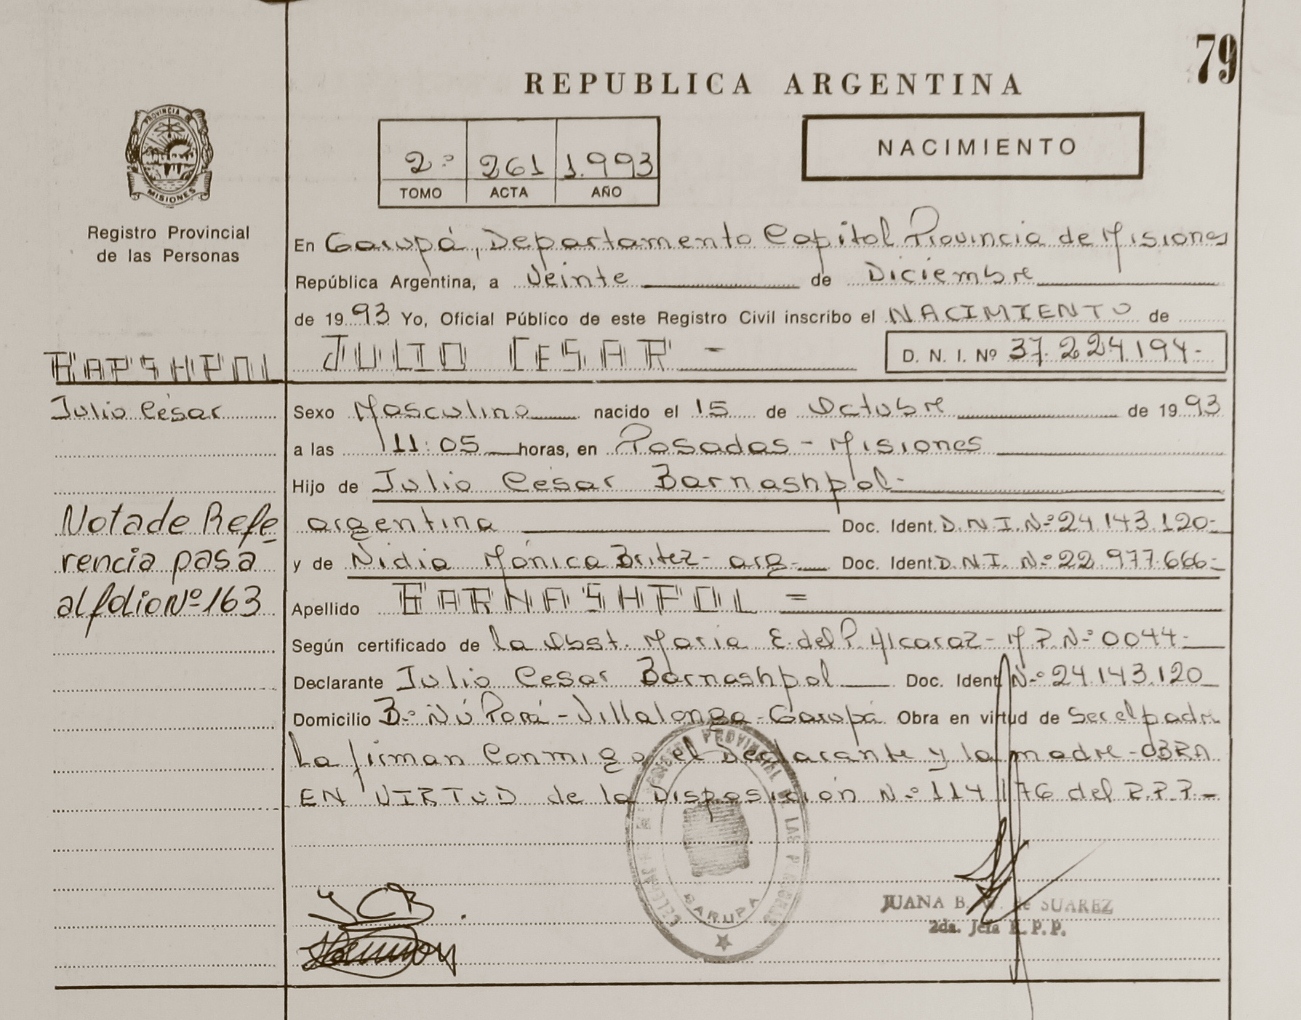 79
REPUBLICA ARGENTINA
PROVINCIA DE
MISIONES
Registro Provincial
de las Personas
2º 261 1.993
TOMO ACTA AÑO
NACIMIENTO
En Garupá, Departamento Capital Provincia de Misiones
República Argentina, a Veinte de Diciembre
de 1993 Yo, Oficial Público de este Registro Civil inscribo el NACIMIENTO de
JULIO CESAR -
D. N. I. Nº 37.224.194-
Julio César
Sexo Masculino nacido el 15 de Octubre de 1993
a las 11:05 horas, en Posadas - Misiones
Hijo de Julio Cesar Barnashpol-
argentina Doc. Ident. D.N.I. Nº 24.143.120-
y de Nidia Mónica Britez - arg. Doc. Ident. D.N.I. Nº 22.977.666-
Apellido BARNASHPOL =
Nota de Refe
rencia pasa
al folio Nº 163
Según certificado de la Obst. María E. del P. Alcaraz - M.P. Nº 0044-
Declarante Julio Cesar Barnashpol Doc. Ident. Nº 24.143.120
Domicilio Bº Ñú Porá - Villalonga - Garupá. Obra en virtud de Ser el padre
La firman Conmigo el Declarante y la madre - OBRA
EN VIRTUD de la Disposición Nº 114/76 del R.P.P.-
REGISTRO PROVINCIAL DE LAS PERSONAS
GARUPA
JCB
JUANA B. de SUAREZ
2da. Jefa R.P.P.